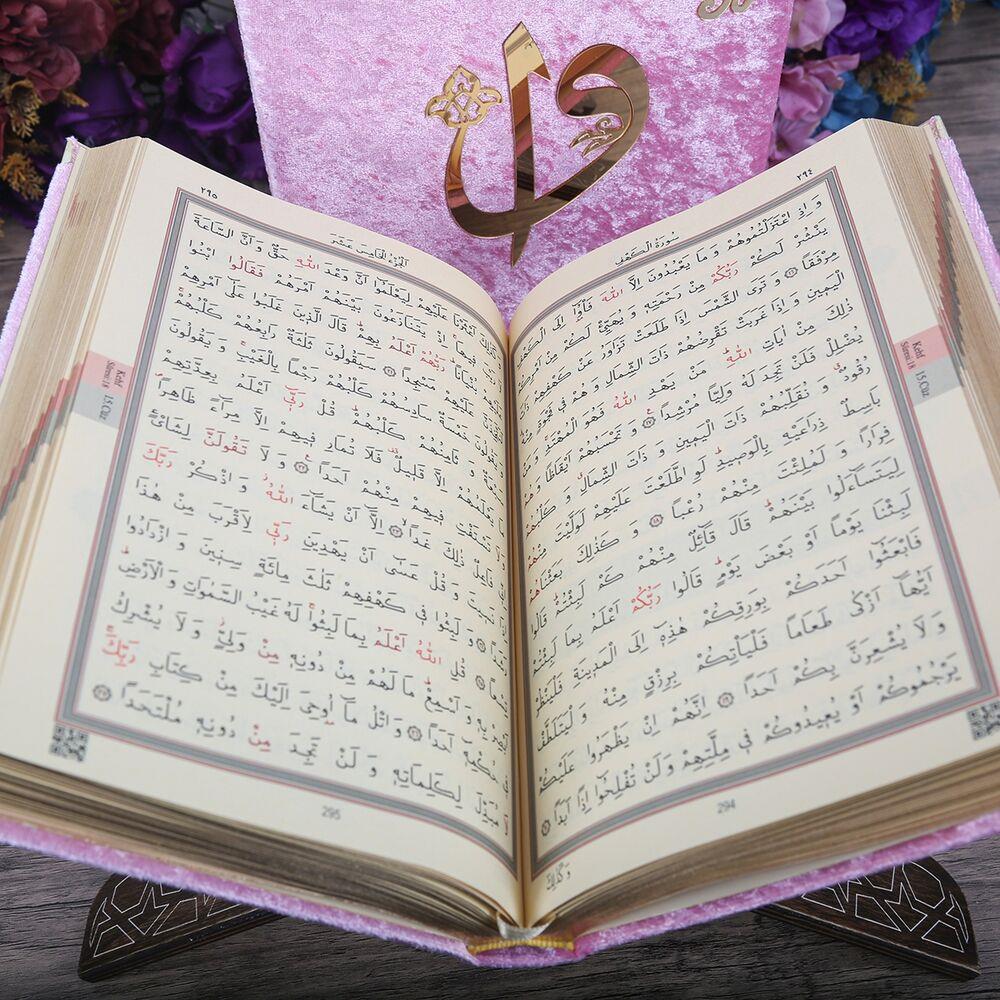 ٢٩٤
سُورَةُ الْكَهْفِ
وَ اِذِ اعْتَزَلْتُمُوهُمْ وَ مَا يَعْبُدُونَ اِلَّا اللّٰهَ فَاْوُٓا اِلَى الْكَهْفِ
يَنْشُرْ لَكُمْ رَبُّكُمْ مِنْ رَحْمَتِهٖ وَ يُهَيِّئْ لَكُمْ مِنْ اَمْرِكُمْ
مِرْفَقًا ﴿١٦﴾ وَ تَرَى الشَّمْسَ اِذَا طَلَعَتْ تَزَاوَرُ عَنْ كَهْفِهِمْ ذَاتَ
الْيَمٖينِ وَ اِذَا غَرَبَتْ تَقْرِضُهُمْ ذَاتَ الشِّمَالِ وَ هُمْ فٖي فَجْوَةٍ مِنْهُ
ذٰلِكَ مِنْ اٰيَاتِ اللّٰهِ مَنْ يَهْدِ اللّٰهُ فَهُوَ الْمُهْتَدِ وَ مَنْ
يُضْلِلْ فَلَنْ تَجِدَ لَهُ وَلِيًّا مُرْشِدًا ﴿١٧﴾ وَ تَحْسَبُهُمْ اَيْقَاظًا وَ هُمْ
رُقُودٌ وَ نُقَلِّبُهُمْ ذَاتَ الْيَمٖينِ وَ ذَاتَ الشِّمَالِ وَ كَلْبُهُمْ
بَاسِطٌ ذِرَاعَيْهِ بِالْوَصٖيدِ لَوِ اطَّلَعْتَ عَلَيْهِمْ لَوَلَّيْتَ مِنْهُمْ
فِرَارًا وَ لَمُلِئْتَ مِنْهُمْ رُعْبًا ﴿١٨﴾ وَ كَذٰلِكَ بَعَثْنَاهُمْ
لِيَتَسَٓاءَلُوا بَيْنَهُمْ قَالَ قَٓائِلٌ مِنْهُمْ كَمْ لَبِثْتُمْ قَالُوا
لَبِثْنَا يَوْمًا اَوْ بَعْضَ يَوْمٍ قَالُوا رَبُّكُمْ اَعْلَمُ بِمَا لَبِثْتُمْ
فَابْعَثُٓوا اَحَدَكُمْ بِوَرِقِكُمْ هٰذِهٖٓ اِلَى الْمَدٖينَةِ فَلْيَنْظُرْ
اَيُّهَٓا اَزْكٰى طَعَامًا فَلْيَاْتِكُمْ بِرِزْقٍ مِنْهُ وَ لْيَتَلَطَّفْ
وَ لَا يُشْعِرَنَّ بِكُمْ اَحَدًا ﴿١٩﴾ اِنَّهُمْ اِنْ يَظْهَرُوا عَلَيْكُمْ
يَرْجُمُوكُمْ اَوْ يُعٖيدُوكُمْ فٖي مِلَّتِهِمْ وَلَنْ تُفْلِحُٓوا اِذًا اَبَدًا ﴿٢٠﴾
وَكَذٰلِكَ
294
Kehf Sûresi 18
15.Cüz
٢٩٥
اَلْجُزْءُ الْخَامِسَ عَشَرَ
وَكَذٰلِكَ اَعْثَرْنَا عَلَيْهِمْ لِيَعْلَمُٓوا اَنَّ وَعْدَ اللّٰهِ حَقٌّ وَ اَنَّ السَّاعَةَ
فٖيهَا اِذْ يَتَنَازَعُونَ بَيْنَهُمْ اَمْرَهُمْ فَقَالُوا ابْنُوا
بُنْيَانًا رَبُّهُمْ اَعْلَمُ بِهِمْ قَالَ الَّذٖينَ غَلَبُوا عَلٰٓى اَمْرِهِمْ
عَلَيْهِمْ مَسْجِدًا ﴿٢١﴾ سَيَقُولُونَ ثَلٰثَةٌ رَابِعُهُمْ كَلْبُهُمْ
يَقُولُونَ خَمْسَةٌ سَادِسُهُمْ كَلْبُهُمْ رَجْمًا بِالْغَيْبِ وَ يَقُولُونَ
وَ ثَامِنُهُمْ كَلْبُهُمْ قُلْ رَبّٖٓي اَعْلَمُ بِعِدَّتِهِمْ
يَعْلَمُهُمْ اِلَّا قَلٖيلٌ فَلَا تُمَارِ فٖيهِمْ اِلَّا مِرَٓاءً ظَاهِرًا
تَسْتَفْتِ فٖيهِمْ مِنْهُمْ اَحَدًا ﴿٢٢﴾ وَ لَا تَقُولَنَّ لِشَايْءٍ
فَاعِلٌ ذٰلِكَ غَدًا ﴿٢٣﴾ اِلَّٓا اَنْ يَشَٓاءَ اللّٰهُ وَ اذْكُرْ رَبَّكَ
نَسٖيتَ وَ قُلْ عَسٰٓى اَنْ يَهْدِيَنِ رَبّٖي لِاَقْرَبَ مِنْ هٰذَا
وَ لَبِثُوا فٖي كَهْفِهِمْ ثَلٰثَ مِائَةٍ سِنٖينَ وَ ازْدَادُوا
قُلِ اللّٰهُ اَعْلَمُ بِمَا لَبِثُوا لَهُ غَيْبُ السَّمٰوَاتِ وَ الْاَرْضِ
بِهٖ وَ اَسْمِعْ مَا لَهُمْ مِنْ دُونِهٖ مِنْ وَلِيٍّ وَ لَا يُشْرِكُ
حُكْمِهٖٓ اَحَدًا ﴿٢٦﴾ وَ اتْلُ مَٓا اُوحِيَ اِلَيْكَ مِنْ كِتَابِ رَبِّكَ
لَا مُبَدِّلَ لِكَلِمَاتِهٖ وَ لَنْ تَجِدَ مِنْ دُونِهٖ مُلْتَحَدًا ﴿٢٧﴾
295
Kehf Sûresi 18
15.Cüz